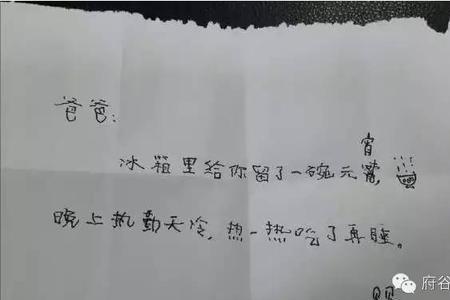 爸爸:
冰箱里给你留了一碗元宵
晚上执勤天冷,热一热吃了再睡。
府谷